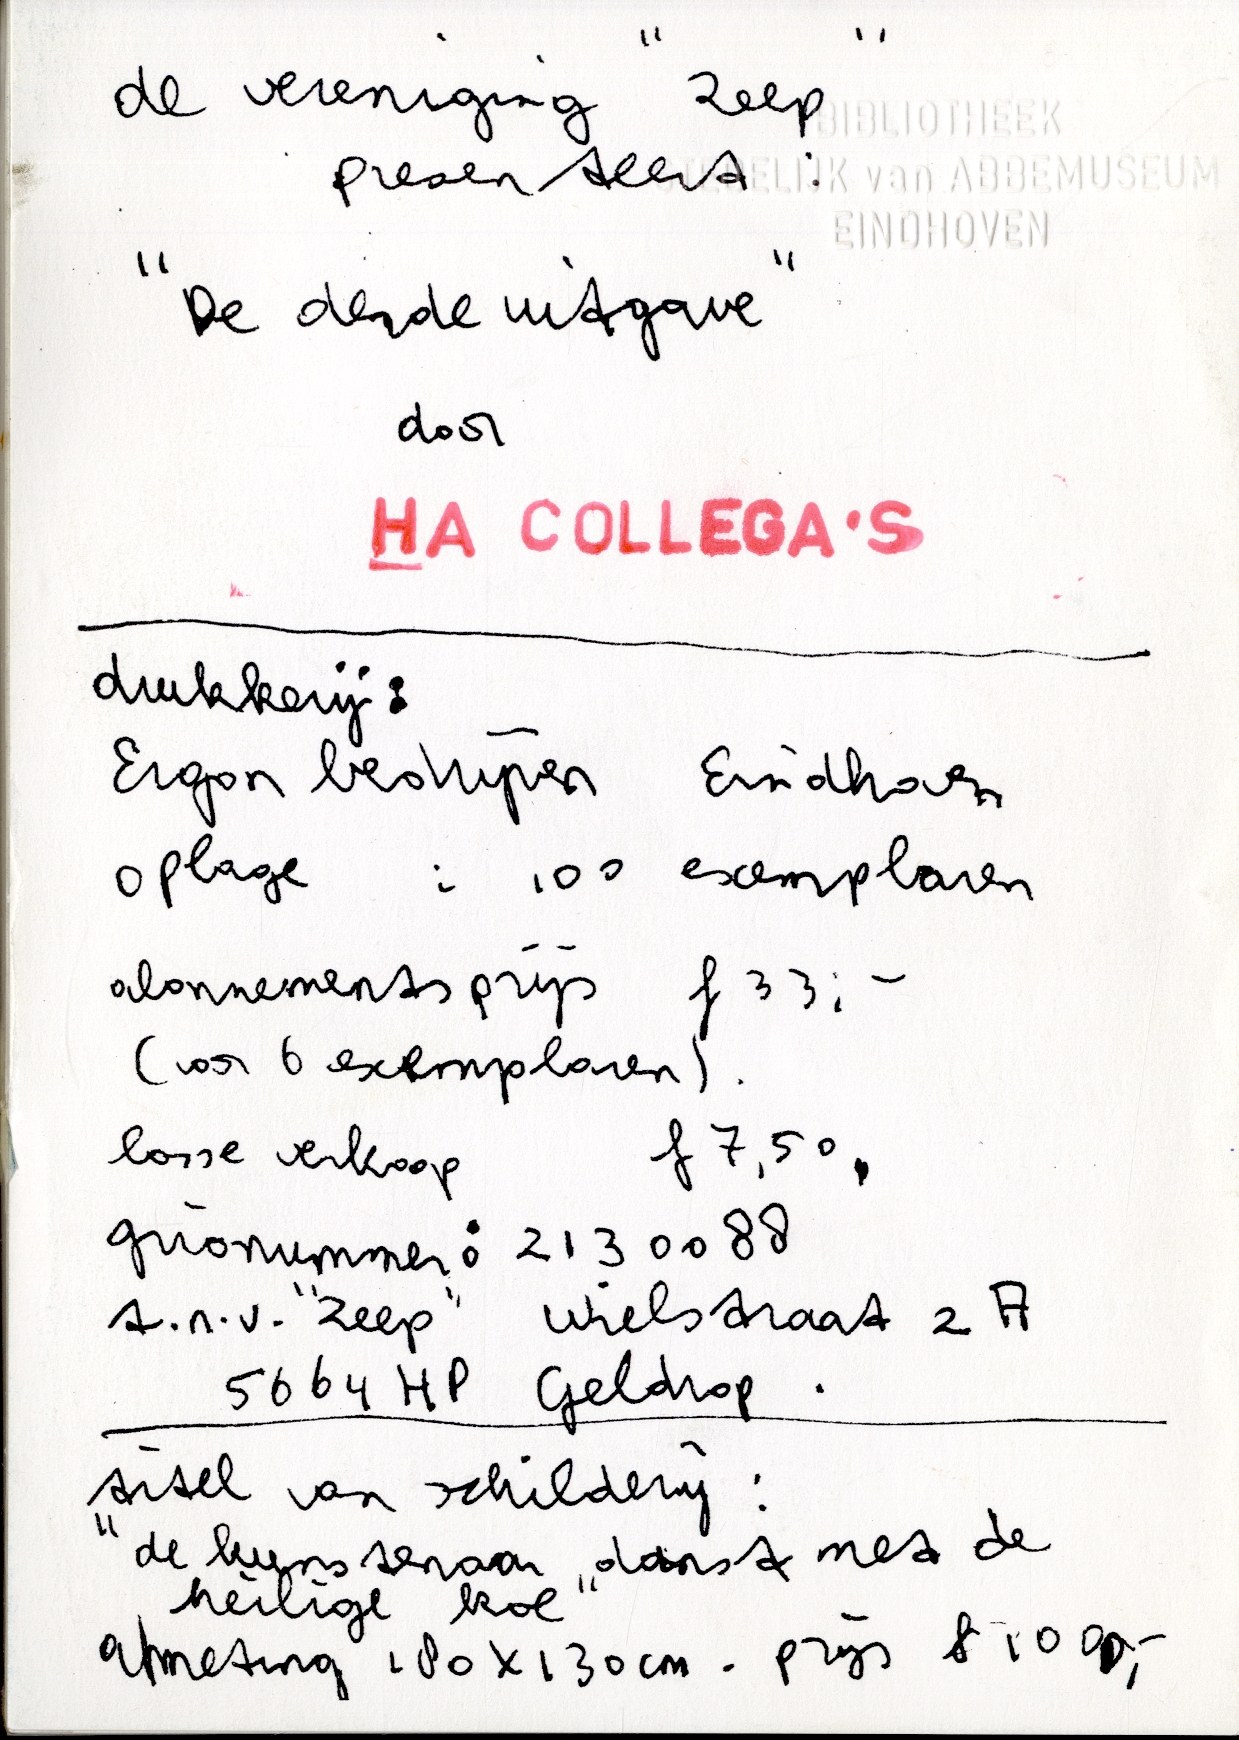 de vereniging "Zeep"
BIBLIOTHEEK
presenteert:
STEDELIJK van ABBEMUSEUM
EINDHOVEN
"De derde uitgave"
door
HA COLLEGA'S
drukkerij:
Ergon bedrijven Eindhoven
oplage : 100 exemplaren
abonnementsprijs f 33,-
(voor 6 exemplaren).
losse verkoop f 7,50,
gironummer: 2130088
t.n.v. "Zeep" Wielstraat 2 A
5664 HP Geldrop.
titel van schilderij:
"de kunstenaar danst met de
heilige koe"
afmeting 180 x 130 cm. prijs f 1000,-